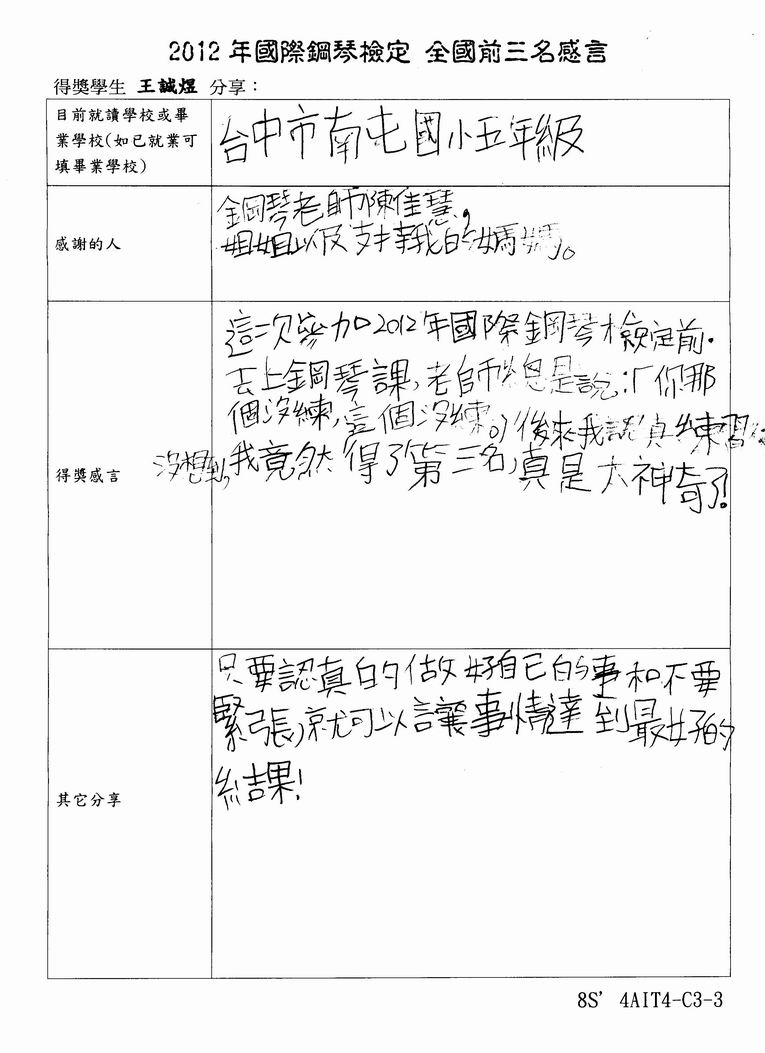 2012 年國際鋼琴檢定 全國前三名感言
得獎學生 王誠煜 分享：
目前就讀學校或畢
業學校(如已就業可
填畢業學校)
台中市南屯國小五年級
感謝的人
鋼琴老師陳佳慧,
姐姐以及支持我的媽媽。
得獎感言
這次參加2012年國際鋼琴檢定前,
去上鋼琴課,老師總是說:「你那
個沒練,這個沒練。」後來我認真練習後
沒想到,我竟然得了第三名,真是太神奇了!
其它分享
只要認真的做好自己的事和不要
緊張,就可以讓事情達到最好的
結果!
8S' 4AIT4-C3-3